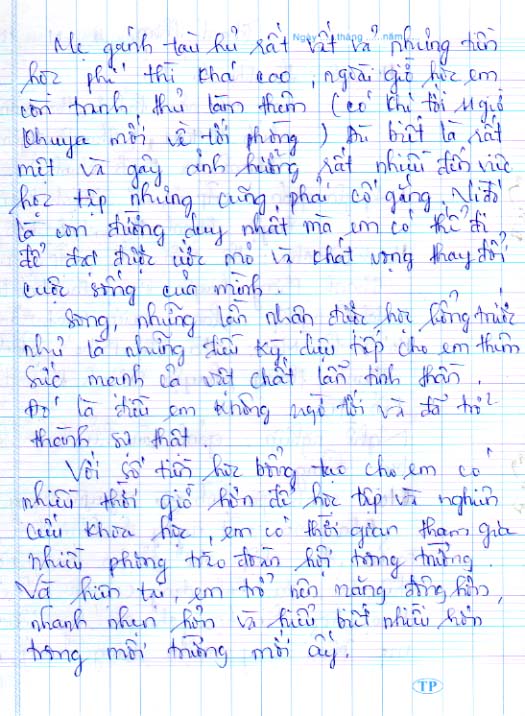 Ngày ... tháng ... năm
Mẹ gánh tàu hủ rất vất vả nhưng tiền
học phí thì khá cao, ngoài giờ học em
còn tranh thủ làm thêm (có khi tới 11 giờ
khuya mới về tới phòng) Dù biết là rất
mệt và gây ảnh hưởng rất nhiều đến việc
học tập nhưng cũng phải cố gắng. Vì đó
là con đường duy nhất mà em có thể đi
để đạt được ước mơ và khát vọng thay đổi
cuộc sống của mình.
Song, những lần nhận được học bổng trước
như là những điều kỳ diệu tiếp cho em thêm
sức mạnh cả vật chất lẫn tinh thần.
Đó là điều em không ngờ tới và đã trở
thành sự thật.
Với số tiền học bổng tạo cho em có
nhiều thời giờ hơn để học tập và nghiên
cứu khoa học, em có thời gian tham gia
nhiều phong trào đoàn hội trong trường.
Và hiện tại, em trở nên năng động hơn,
nhanh nhẹn hơn và hiểu biết nhiều hơn
trong môi trường mới ấy.
TP